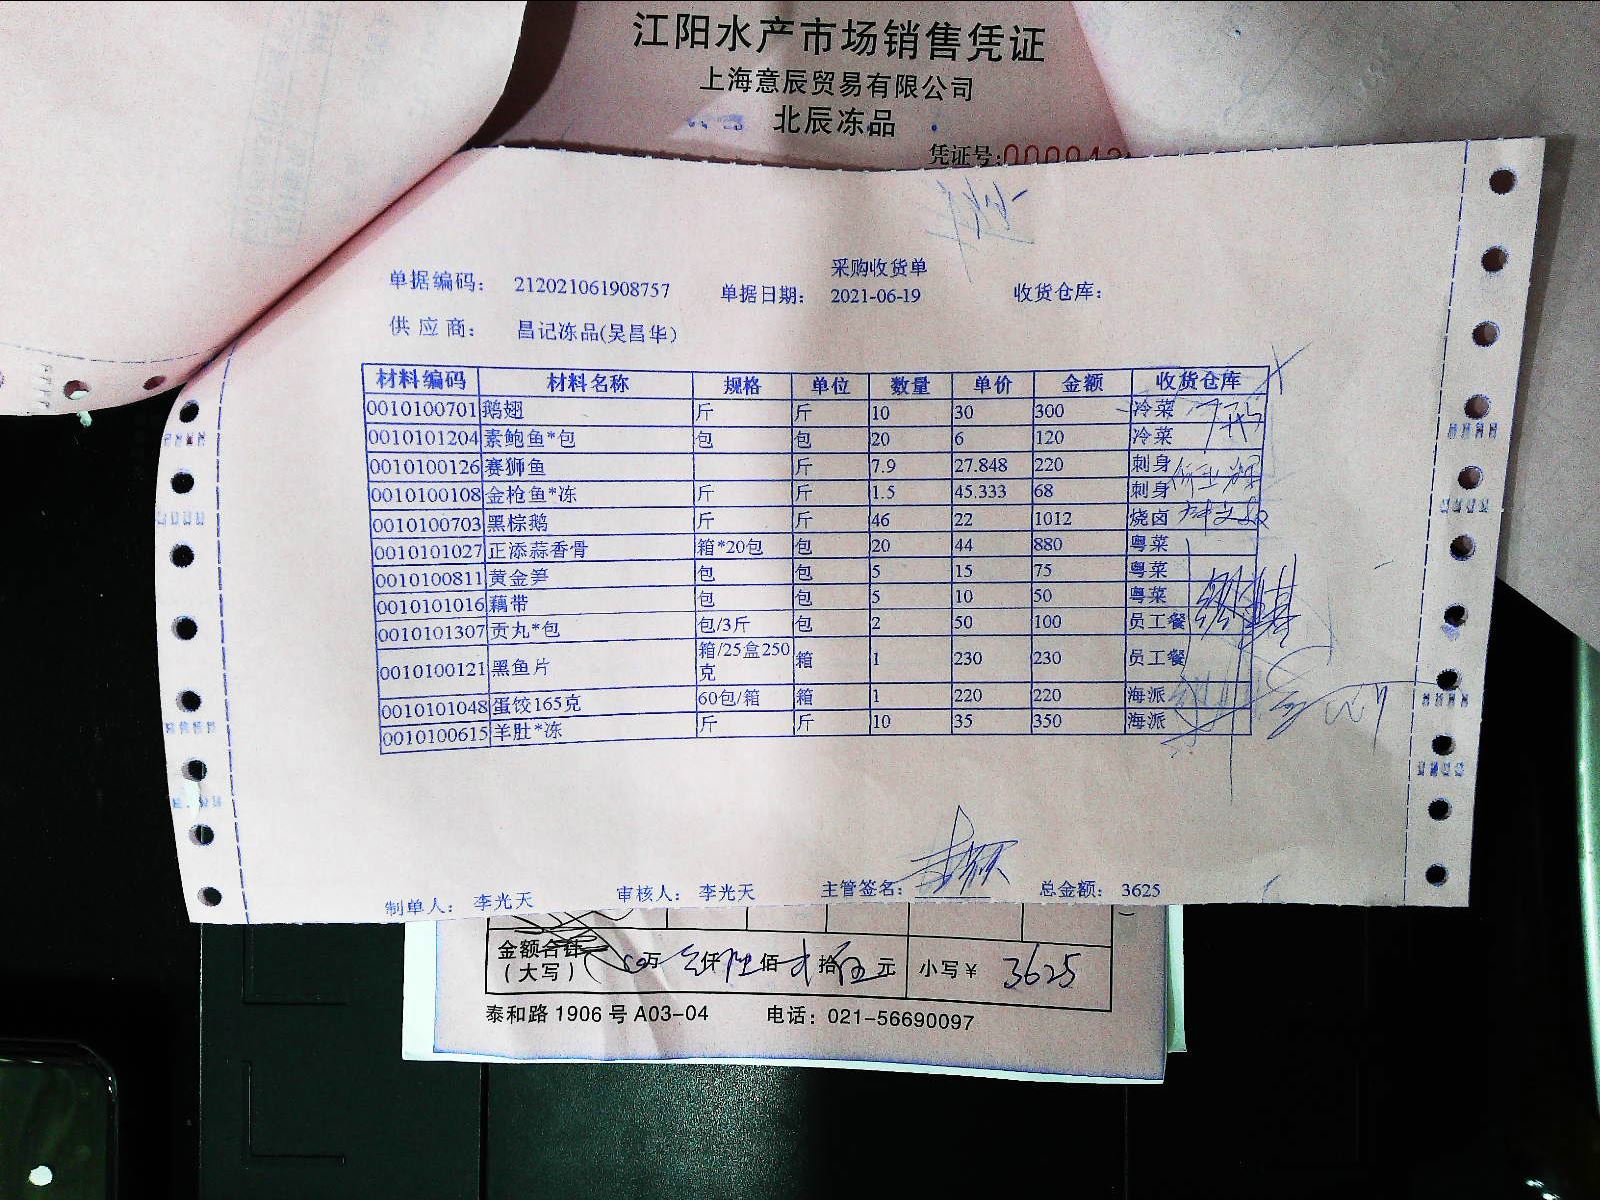 江阳水产市场销售凭证
上海意辰贸易有限公司
北辰冻品
凭证号:
采购收货单
单据编码: 212021061908757 单据日期: 2021-06-19 收货仓库:
供应商: 昌记冻品(吴昌华)
材料编码 材料名称 规格 单位 数量 单价 金额 收货仓库
0010100701 鹅翅 斤 斤 10 30 300 冷菜
0010101204 素鲍鱼*包 包 包 20 6 120 冷菜
0010100126 赛狮鱼 斤 7.9 27.848 220 刺身
0010100108 金枪鱼*冻 斤 斤 1.5 45.333 68 刺身
0010100703 黑棕鹅 斤 斤 46 22 1012 烧卤
0010101027 正添蒜香骨 箱*20包 包 20 44 880 粤菜
0010100811 黄金笋 包 包 5 15 75 粤菜
0010101016 藕带 包 包 5 10 50 粤菜
0010101307 贡丸*包 包/3斤 包 2 50 100 员工餐
0010100121 黑鱼片 箱/25盒250克 箱 1 230 230 员工餐
0010101048 蛋饺165克 60包/箱 箱 1 220 220 海派
0010100615 羊肚*冻 斤 斤 10 35 350 海派
制单人: 李光天 审核人: 李光天 主管签名: 总金额: 3625
金额合计
(大写) 万 仟 佰 拾 元 小写¥ 3625
泰和路1906号A03-04 电话: 021-56690097